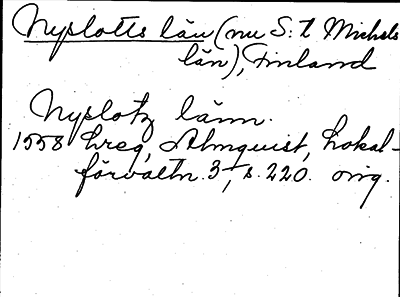 Nyslotts län (nu S:t Michels
län), Finland
Nyslotz länn.
1558 Lreg, Almquist, Lokal-
förvaltn. 3, s. 220. orig.